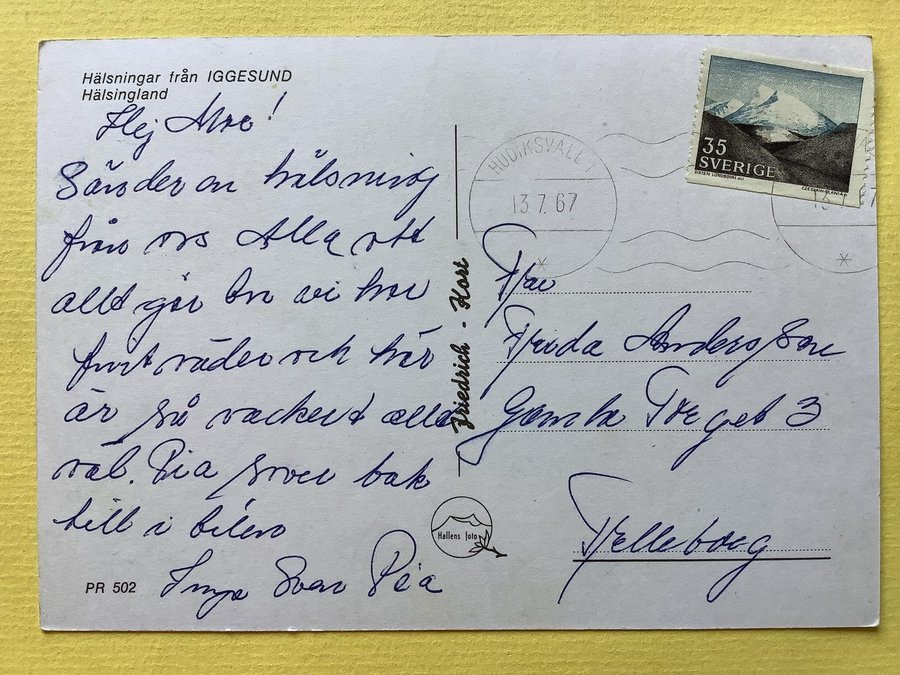 Hälsningar från IGGESUND
Hälsingland
Hej Moe!
Sänder en hälsning
från oss Alla att
allt går bra vi har
fint väder och här
är så vackert alla
väl. Pia sover bak
till i bilen
Inga Sven Pia
PR 502
Friedrich - Kort
Hallens foto
HUDIKSVALL 1
13.7.67
35
SVERIGE
Fru
Frida Andersson
Gamla Torget 3
Trelleborg